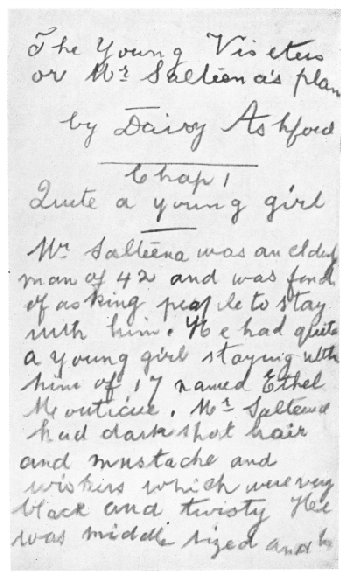 The Young Visiters
or Mr Salteena's plan
by Daisy Ashford
Chap 1
Quite a young girl
Mr Salteena was an elderly
man of 42 and was fond
of asking people to stay
with him. He had quite
a young girl staying with
him of 17 named Ethel
Monticue. Mr Salteena
had dark short hair
and mustache and
wiskers which were very
black and twisty He
was middle sized and h